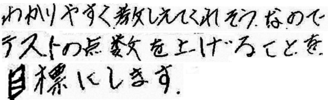 わかりやすく教えてくれそうなので
テストの点数を上げることを
目標にします.